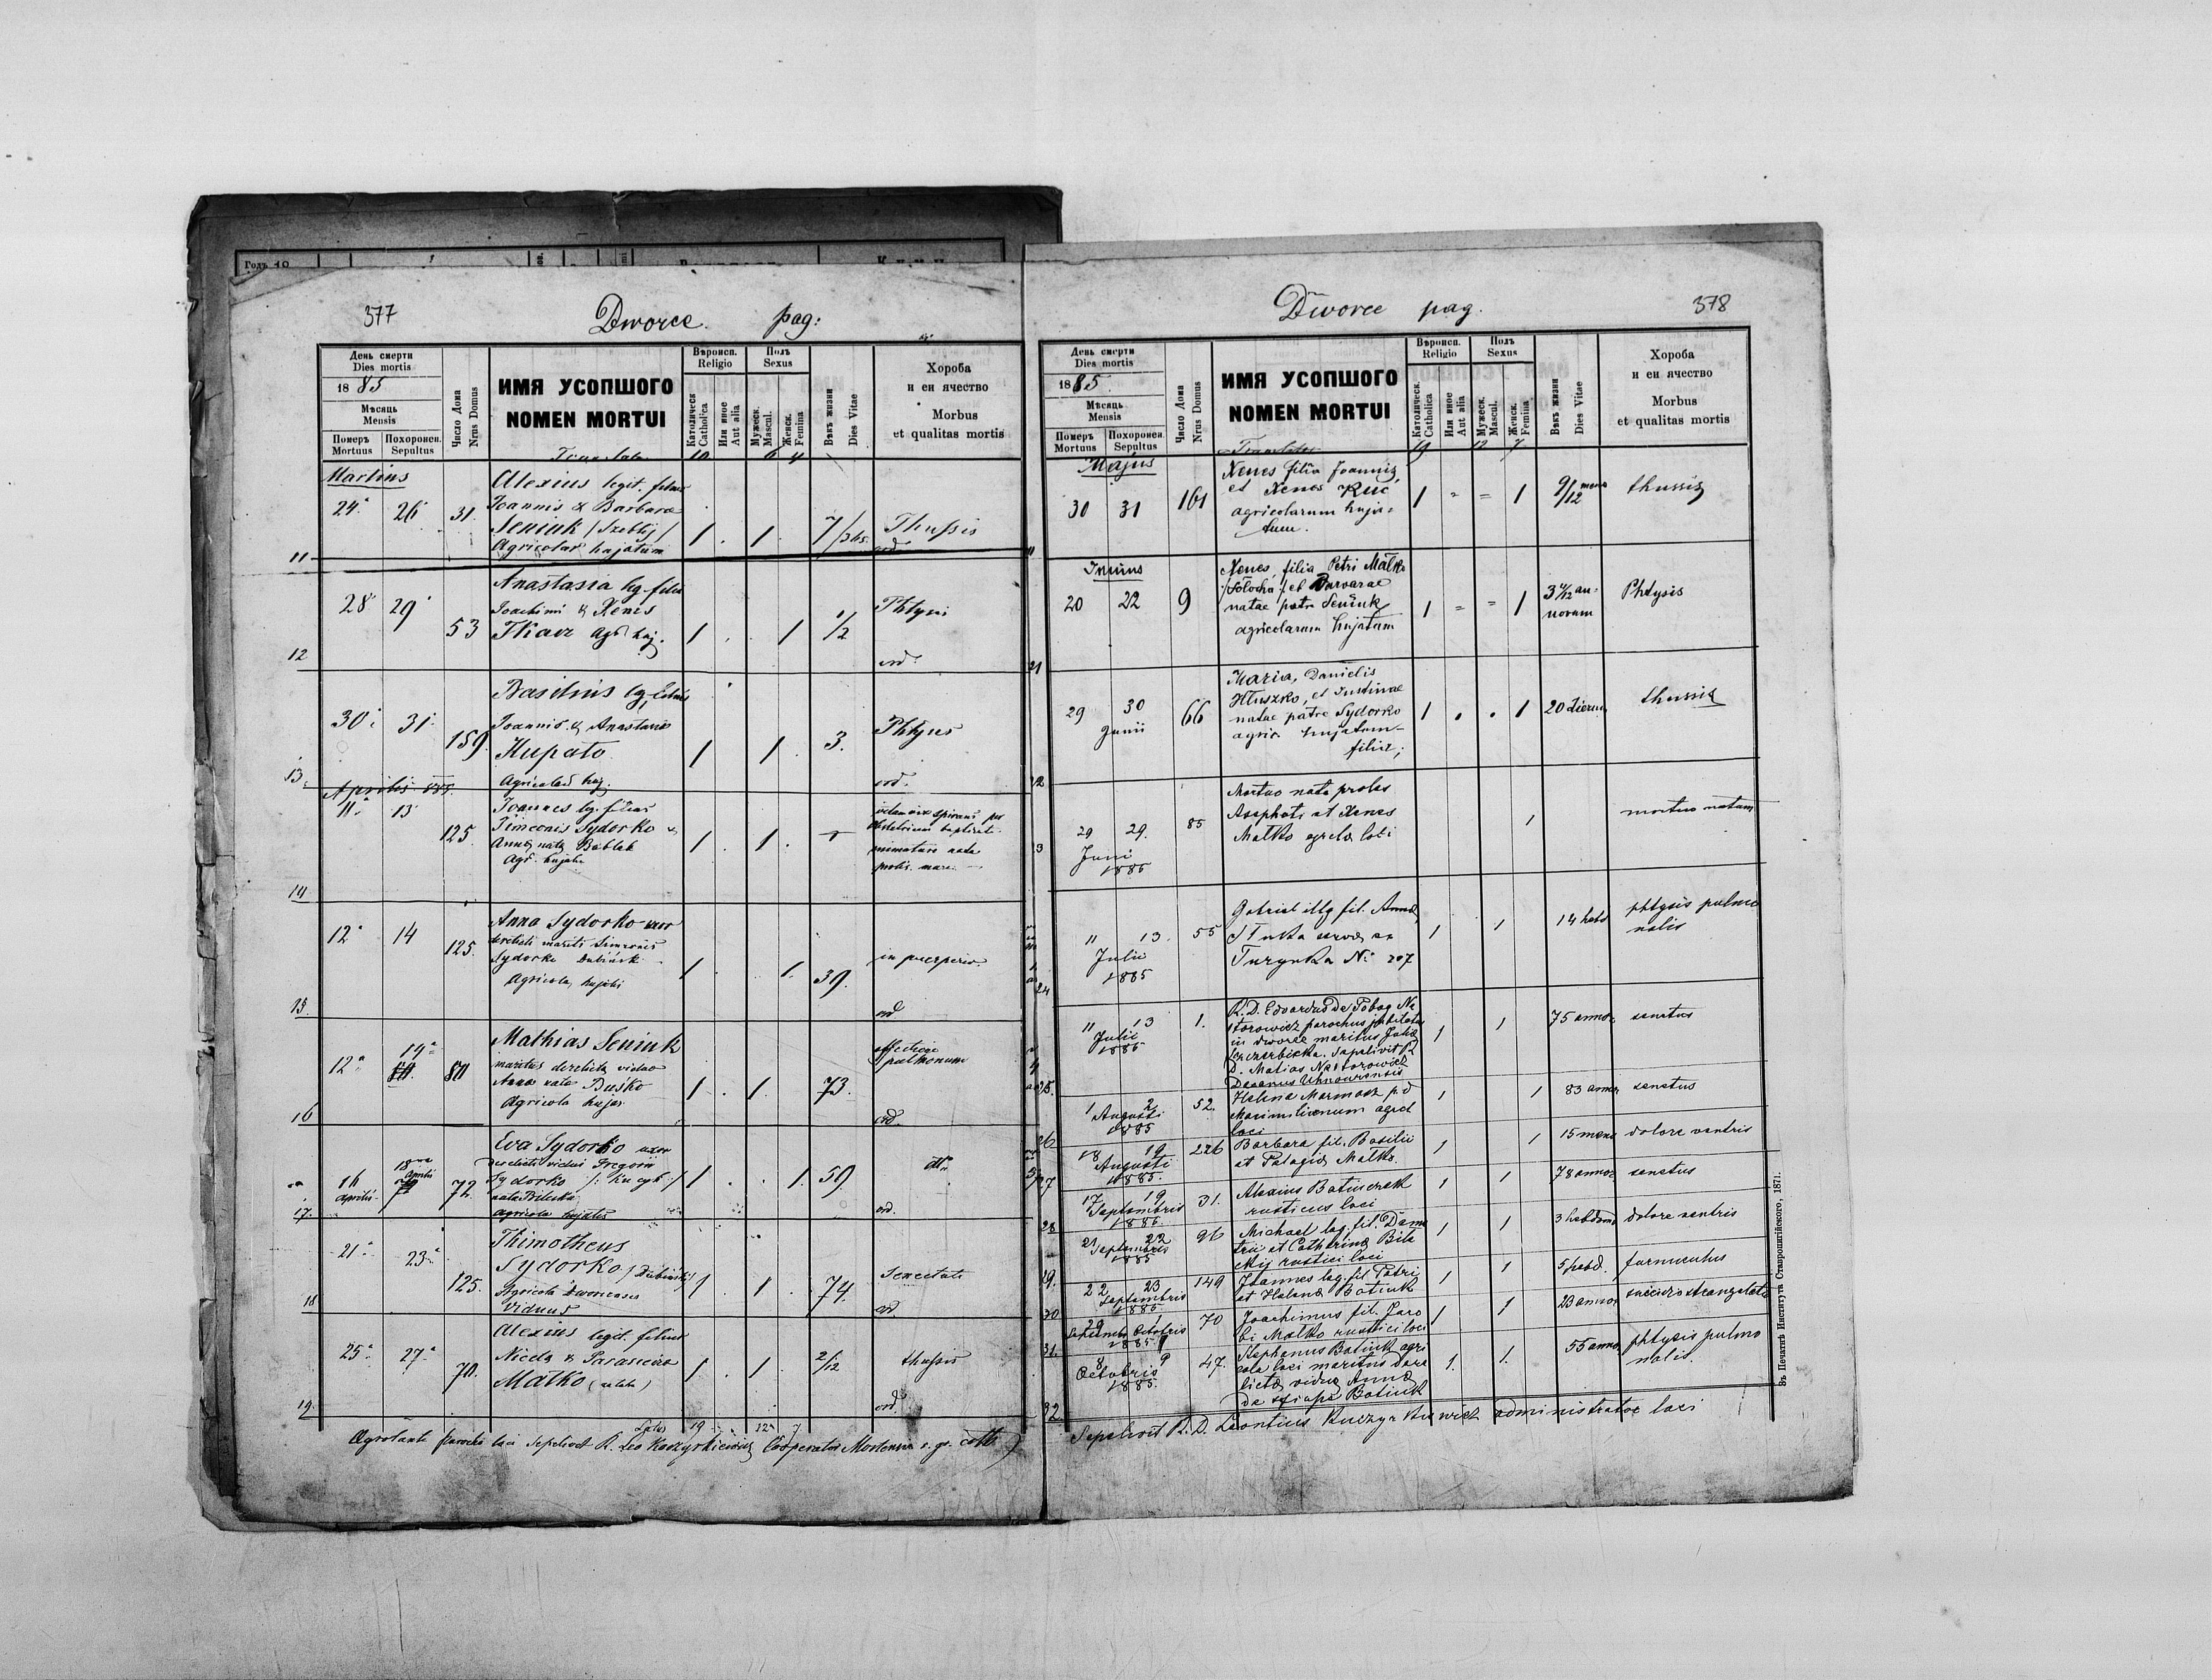 377
Dworce. pag:
День смерти
Dies mortis
1885
Мѣсяць
Mensis
Померъ
Mortuus
Похоронен.
Sepultus
Число Дома
Nrus Domus
ИМЯ УСОПШОГО
NOMEN MORTUI
Вѣроисп.
Religio
Католическ
Catholica
Или иное
Aut alia
Полъ
Sexus
Мужеск.
Mascul.
Женск.
Femina
Вѣкъ жизни
Dies Vitae
Хороба
и еи ячество
Morbus
et qualitas mortis
Translatu 10 6 4
Martius
24 26 31.
Alexius legit. filius
Joannis & Barbara
Seniuk /Szeblij/
Agricolar hajatum
1 . 1 .
Thussis
ord
11
28 29 53
Anastasia lg. filia
Joachimi & Xenis
Tkacz Agr haj.
1 . . 1 1/2
Phtysi
ord.
12
30 31 159
Basilius lg. filius
Joannis & Anastasia
Kupato
Agricolar haj.
1 1 . 3.
Phtyses
ord.
13.
Aprilis 885.
11 13 125
Joannes lg. filius
Simeonis Sydorko &
Anna nata Bablak
Agr. hujatu
1 . 1 .
obstetricem baptisat.
nata
prolis
14
12 14 125.
Anna Sydorko uxor
derelicti mariti Simeonis
Sydorko Dubinik
Agricola, hujati
1 . . 1. 39.
in puerperio.
ord
15.
12 14 80
Mathias Seniuk
maritus derelicta vidua
Anna nata Busko
Agricola hujas
1 . 1 . 73.
affectione
pulmonum
ord.
16
16 18
Aprilis Aprili
72
Eva Sydorko uxor
derelicti vidui Gregorii
Sydorko /: Kucyk :/
nata Bilecka
Agricola hujatis
1 . . 1. 59
dtto
ord.
17.
21 23 125.
Thimotheus
Sydorko /Dubinski/
Agricola Dworcensis
Viduus
1 . 1 . 74.
Senectute
ord.
18
25 27 70.
Alexius legit. filius
Nicola & Parascevia
Malko
1 . 1 . 2/12
thussis
ord.
19.
Latus 19 12 7
Aegrotante parocho loci sepelivit R. Leo Kuczyrkiewicz Cooperator Mostensis r. gr. cath
Dworce pag. 378
День смерти
Dies mortis
1885.
Мѣсяць
Mensis
Померъ
Mortuus
Похоронен.
Sepultus
Число Дома
Nrus Domus
ИМЯ УСОПШОГО
NOMEN MORTUI
Вѣроисп.
Religio
Католическ.
Catholica
Или иное
Aut alia
Полъ
Sexus
Мужеск.
Mascul.
Женск.
Femina
Вѣкъ жизни
Dies Vitae
Хороба
и еи ячество
Morbus
et qualitas mortis
Translatus 19 12 7
Majus
30 31 161
Xenes filia Joannis
et Xenes Kuc
agricolarum huja=
tum.
1 = = 1 9/12 mens
thussis
Junius
20 22 9
Xenes filia Petri Malko
/Solocha/ et Barvarae
natae patre Seniuk
agricolarum hujatum
1 = = 1
annorum
Phtysis
21
29 30
Junii
66
Maria, Danielis
Hluszko, et Justinae
natae patre Sydorko
agric hujatum
filia;
1 . . 1 20 dierum
thussis
22
29 29.
Juni
1885
85
Mortuo nata proles
Asaphati et Xenes
Malko agrclae loci
1
mortuo natum
23
11 13.
Julii
1885
55
Gabriel illg fil. Annae
Stuska
Turynka No 207
1 1 14 hebd
phtysis pulmo
nalis
24
11 13
Julii
1885
1.
R. D. Edvardus de Pobog Ne
storowicz parochus jubilatus
in Dworce maritus Julia
Szczerbicka. Sepelivit R.
D. Matias Nestorowicz
Decanus Uhnowensis
1 1 75 annor
senectus
25.
1 2
Augusti
1885
52.
Helena Marmosz p. d
Maximilianum agrcl
loci
1 1 83 annor
senectus
26
18 19
Augusti
1885.
226
Barbara fil. Basilii
et Pelagia Malko.
1 1 15 mens
dolore ventris
27
17 19
Septembris
1885.
31.
Alexius Batiuczek
rusticus loci
1 1 78 annor
senectus
28
21 22
Septembris
1885
96
Michael leg. fil. Deme
trii et Catharina Bile
ckij rustici loci
1 1 3 hebdom
dolore ventris
29.
22 23
Septembris
1885
149
Joannes leg. fil Petri
et Helena Batiuk
1 1 5 hebd.
furunculus
30
29 1
Septembr Octobris
1885
70
Joachimus fil. Jaco
bi Malko rustici loci
1 1 23 annor
suicidio strangulatio
31.
8 9
Octobris
1885.
47.
Stephanus Batiuk agri
cola loci maritus dere
licta vidua Anna
Batiuk
1. 1. 55 annor
phtysis pulmo
nalis.
32
Sepelivit R. D. Leontius Kuczyrkiewicz administrator loci
Въ Печатнѣ Института Ставропигійского, 1871.